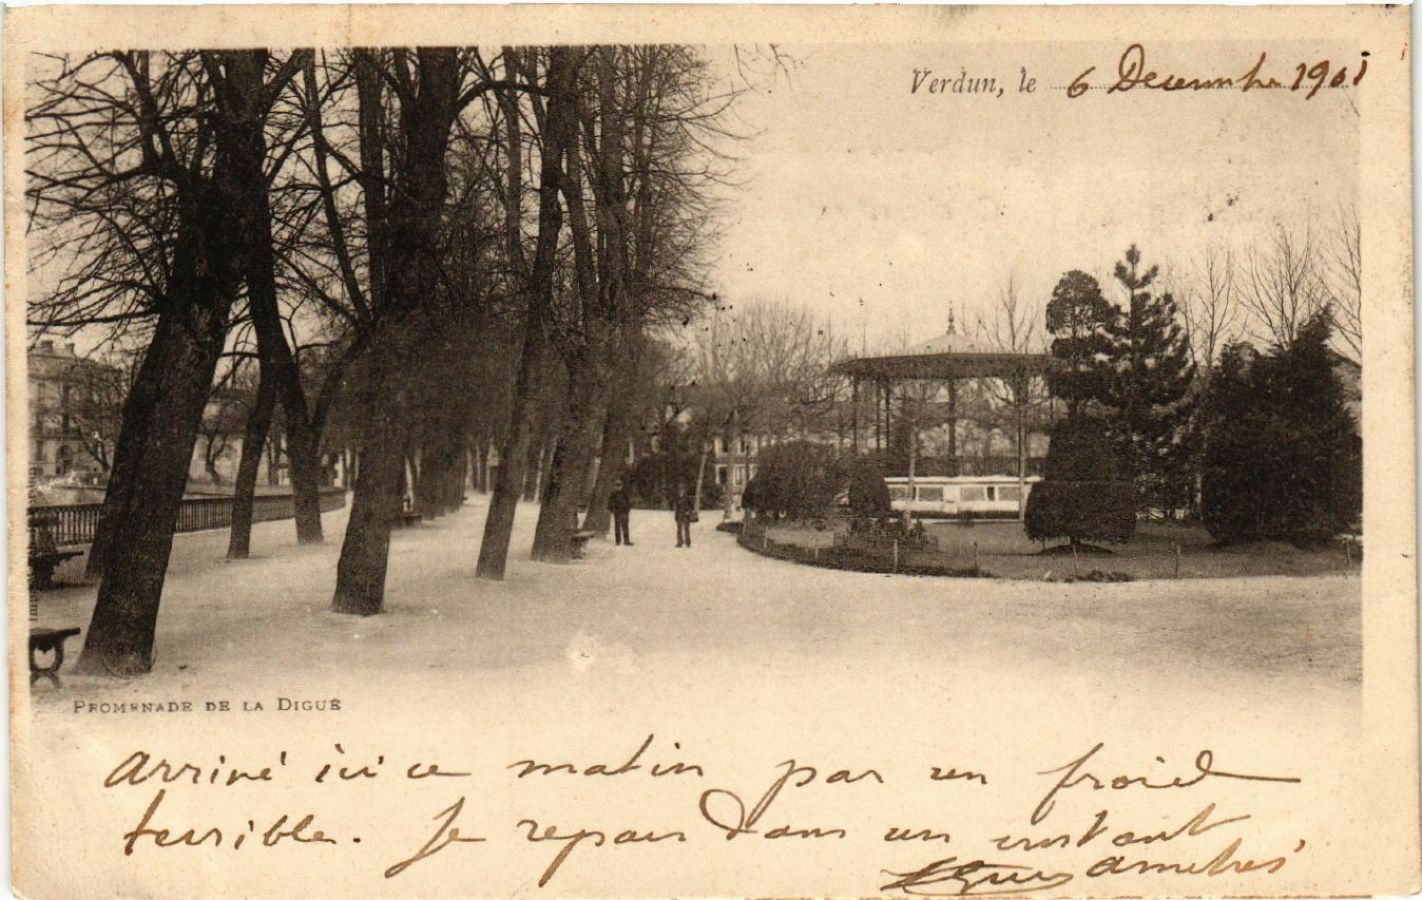 Verdun, le 6 Decembre 1901
PROMENADE DE LA DIGUE
Arrivé ici ce matin par un froid
terrible. Je repars dans un instant
amitiés